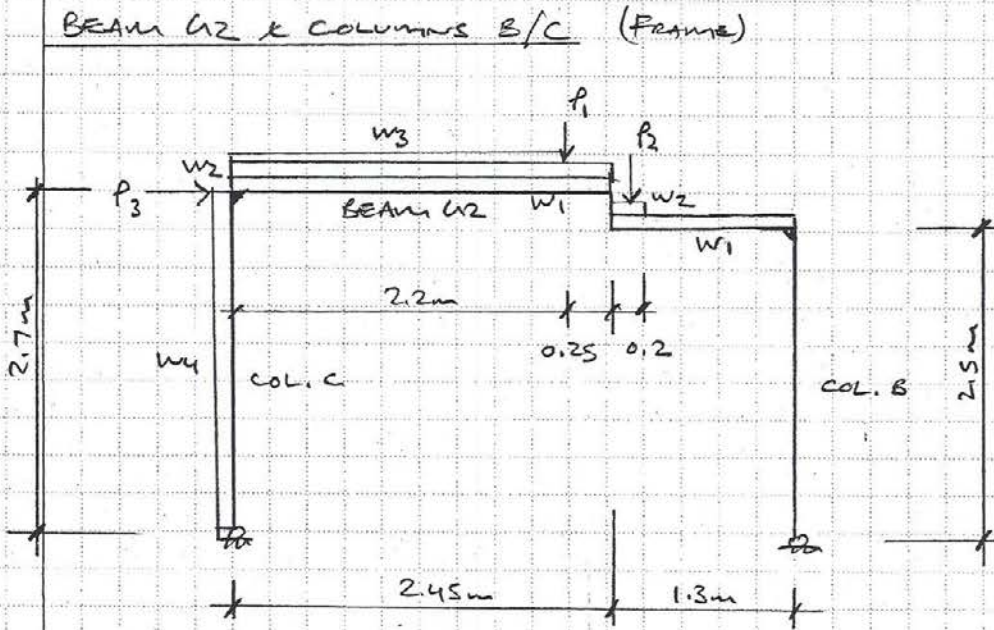 BEAM G2 & COLUMNS B/C (FRAME)
P1
W3
P2
W2
W2
P3
BEAM G2
W1
W1
2.2m
2.7m
0.25
0.2
W4
COL. C
COL. B
2.5m
2.45m
1.3m